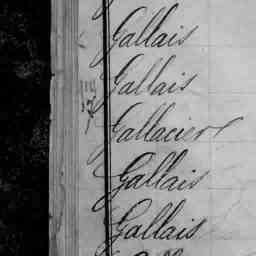 Gallais
Gallais
Gallacier
Gallais
Gallais